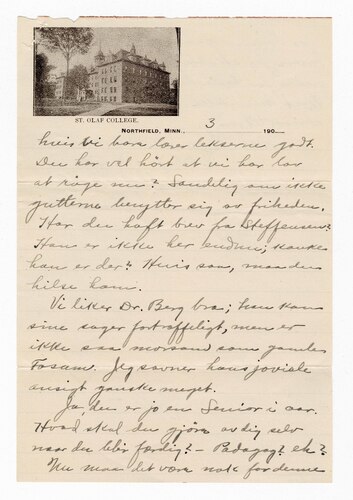 ST. OLAF COLLEGE.
NORTHFIELD, MINN., 3 190
hvis vi bare lærer lekserne godt.
Du har vel hört at vi har lov
at röge nu? Sandelig om ikke
gutterne benytter sig av friheden.
Har du haft brev fra Steffensen?
Han er ikke her endnu; kanske
han er der? Hvis saa, maa du
hilse ham.
Vi liker Dr. Berg bra; han kan
sine sager fortræffeligt, men er
ikke saa morsom som gamle
Fossum. Jeg savner hans joviale
ansigt ganske meget.
Ja, du er jo en Senior i aar.
Hvad skal du gjöre av dig selv
naar du blir færdig? — Pædagog? eh?
Nu maa det være nok for denne